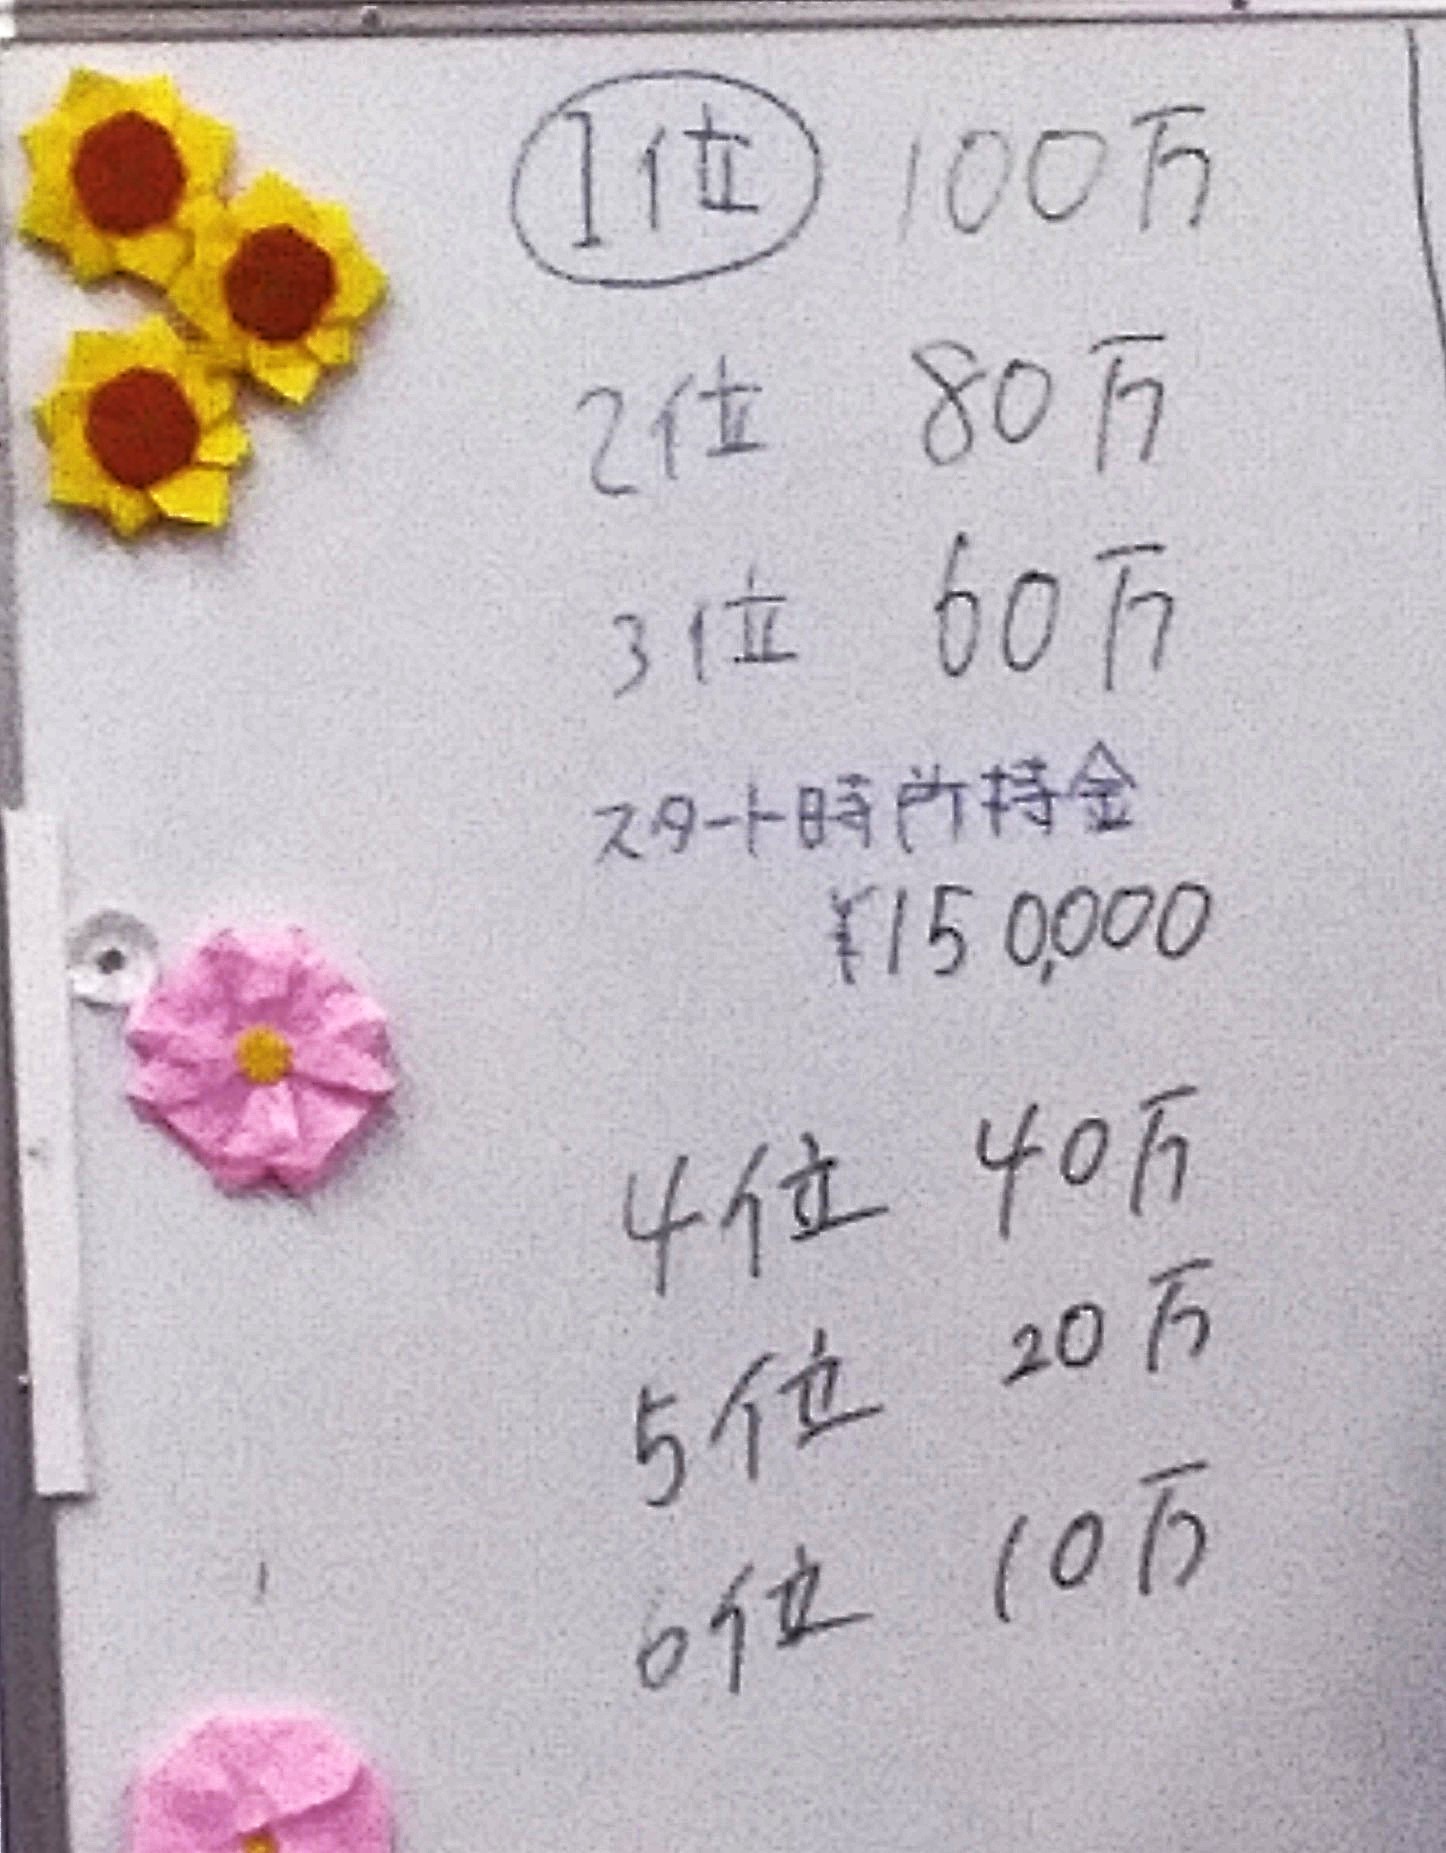 1位 100万
2位 80万
3位 60万
スタート時所持金
¥150,000
4位 40万
5位 20万
6位 10万